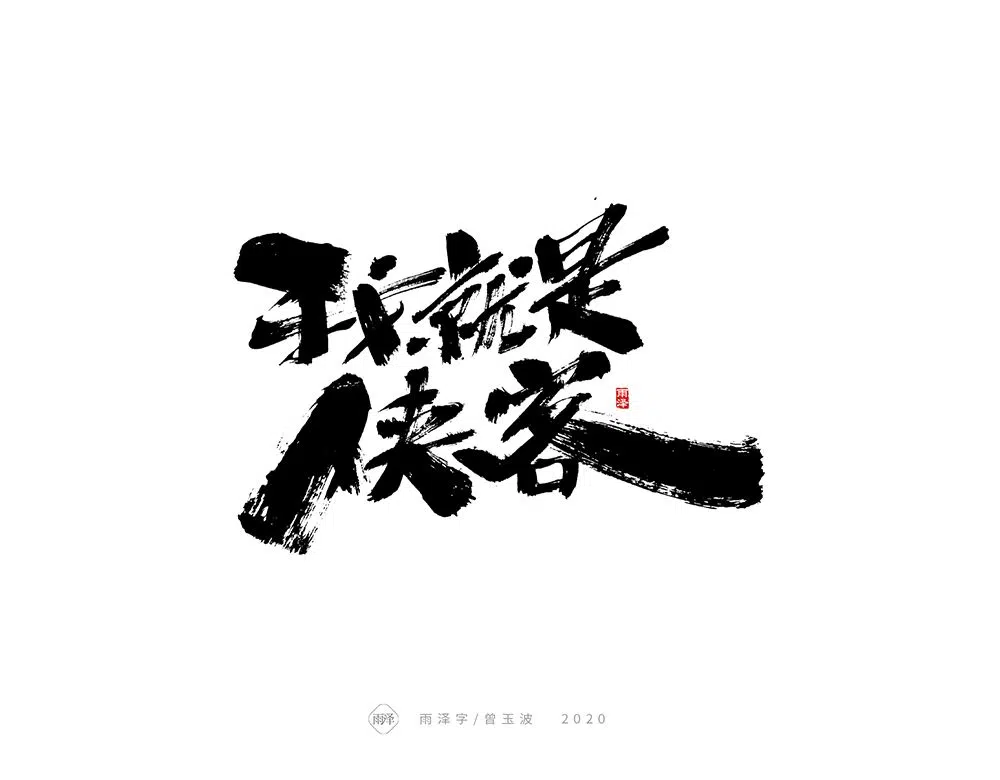 我就是
侠客
雨泽
雨泽 雨泽字/曾玉波 2020